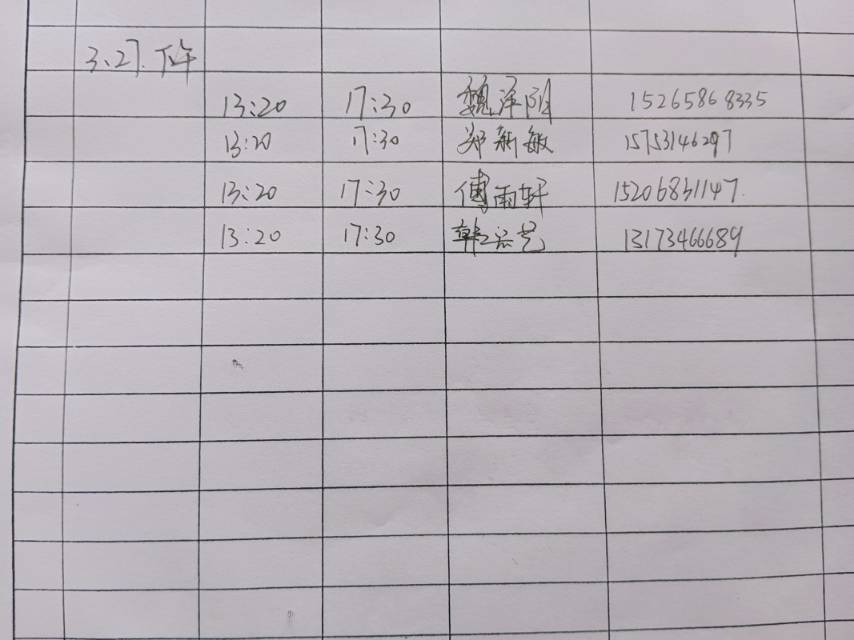 3.27.下午
13:20 17:30 魏泽阳 15265868335
13:20 17:30 郑新敏 15753146297
13:20 17:30 傅雨轩 15206831147
13:20 17:30 韩 艺 13173466689